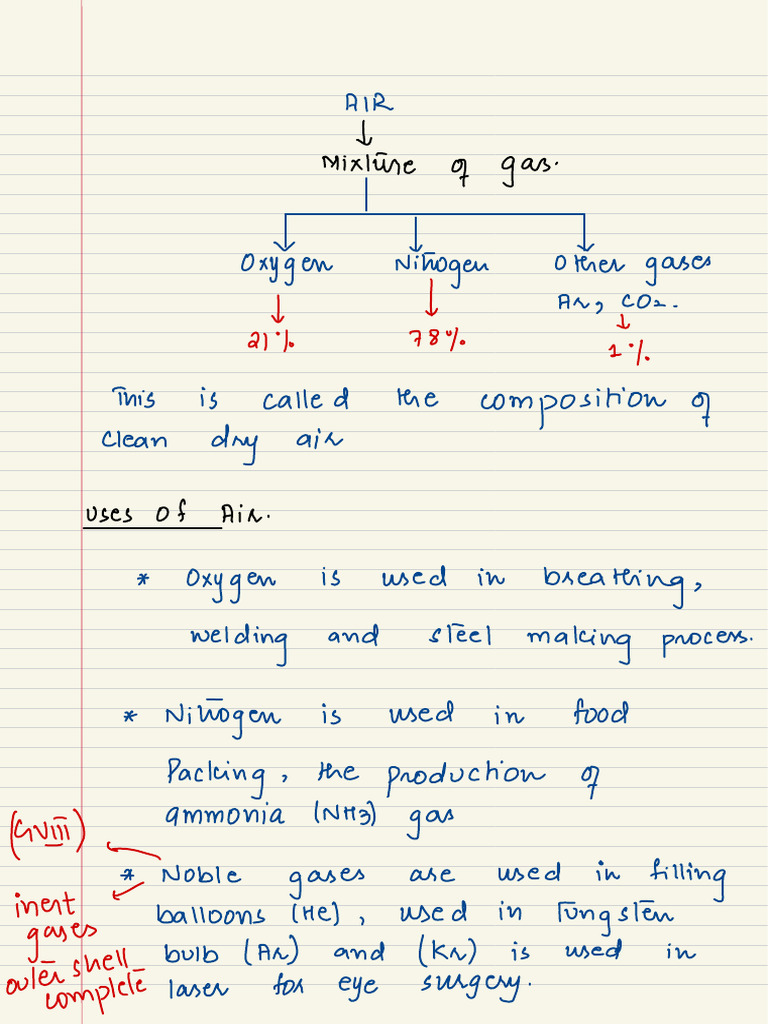 AIR
↓
Mixture of gas.
Oxygen Nitrogen Other gases
Ar, CO2.
21% 78% 1%
This is called the composition of
clean dry air
Uses Of Air.
* Oxygen is used in breathing,
welding and steel making process.
* Nitrogen is used in food
Packing, the production of
ammonia (NH3) gas
(GVIII)
* Noble gases are used in filling
balloons (He), used in Tungsten
bulb (Ar) and (Kr) is used in
laser for eye surgery.
inert
gases
outer shell
complete